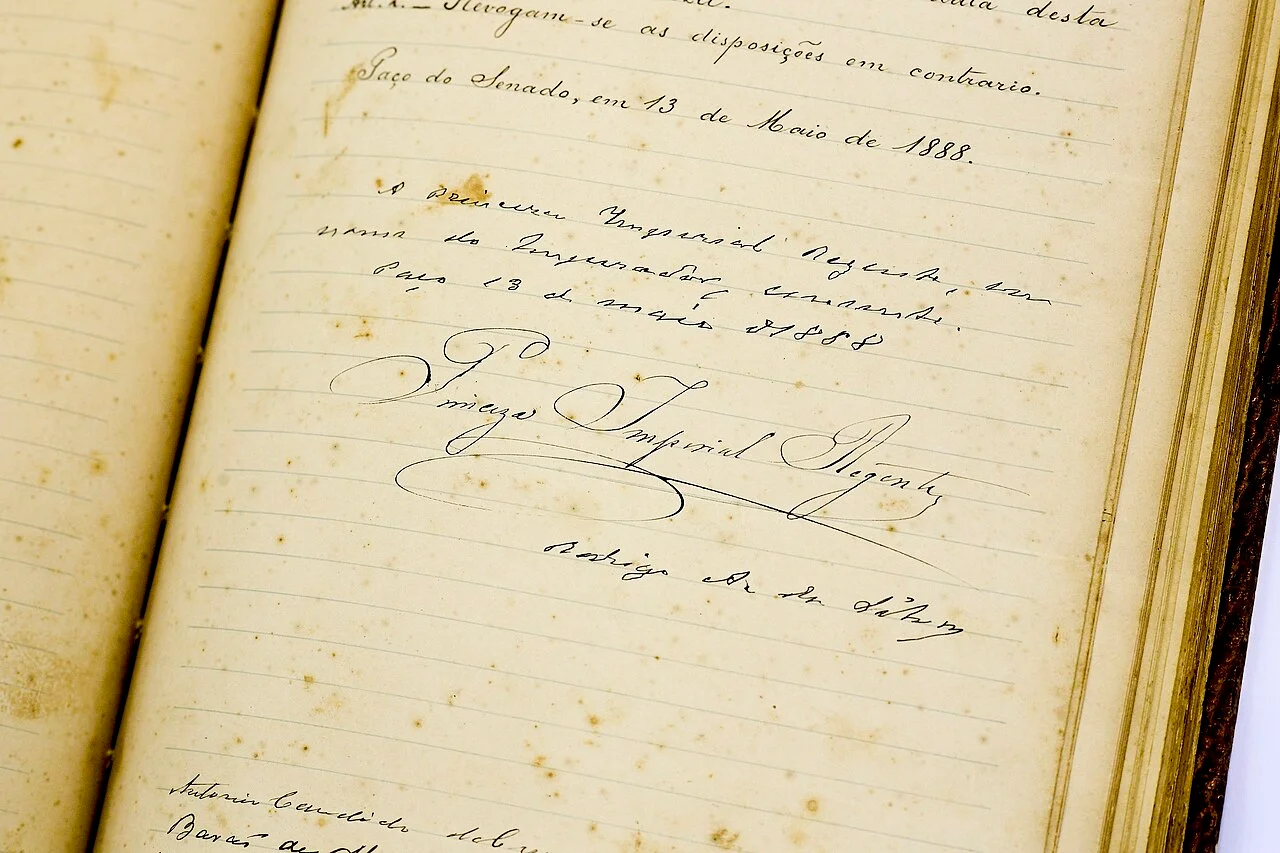 desta
Art. 2. — Revogam-se as disposições em contrario.
Paço do Senado, em 13 de Maio de 1888.
A Princeza Imperial Regente, em
nome do Imperador, consente.
Paço 13 de maio d 1888
Princeza Imperial Regente
Rodrigo A. da Silva
Antonio Candido da
Barão de